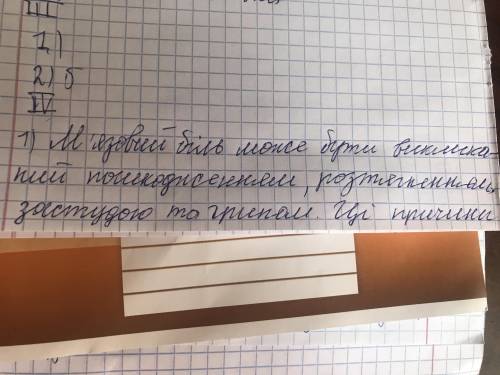 III
1)
2) б
IV
1) М'язовий біль може бути виклика-
ний пошкодженням, розтягненням,
застудою та грипом. Ці причини